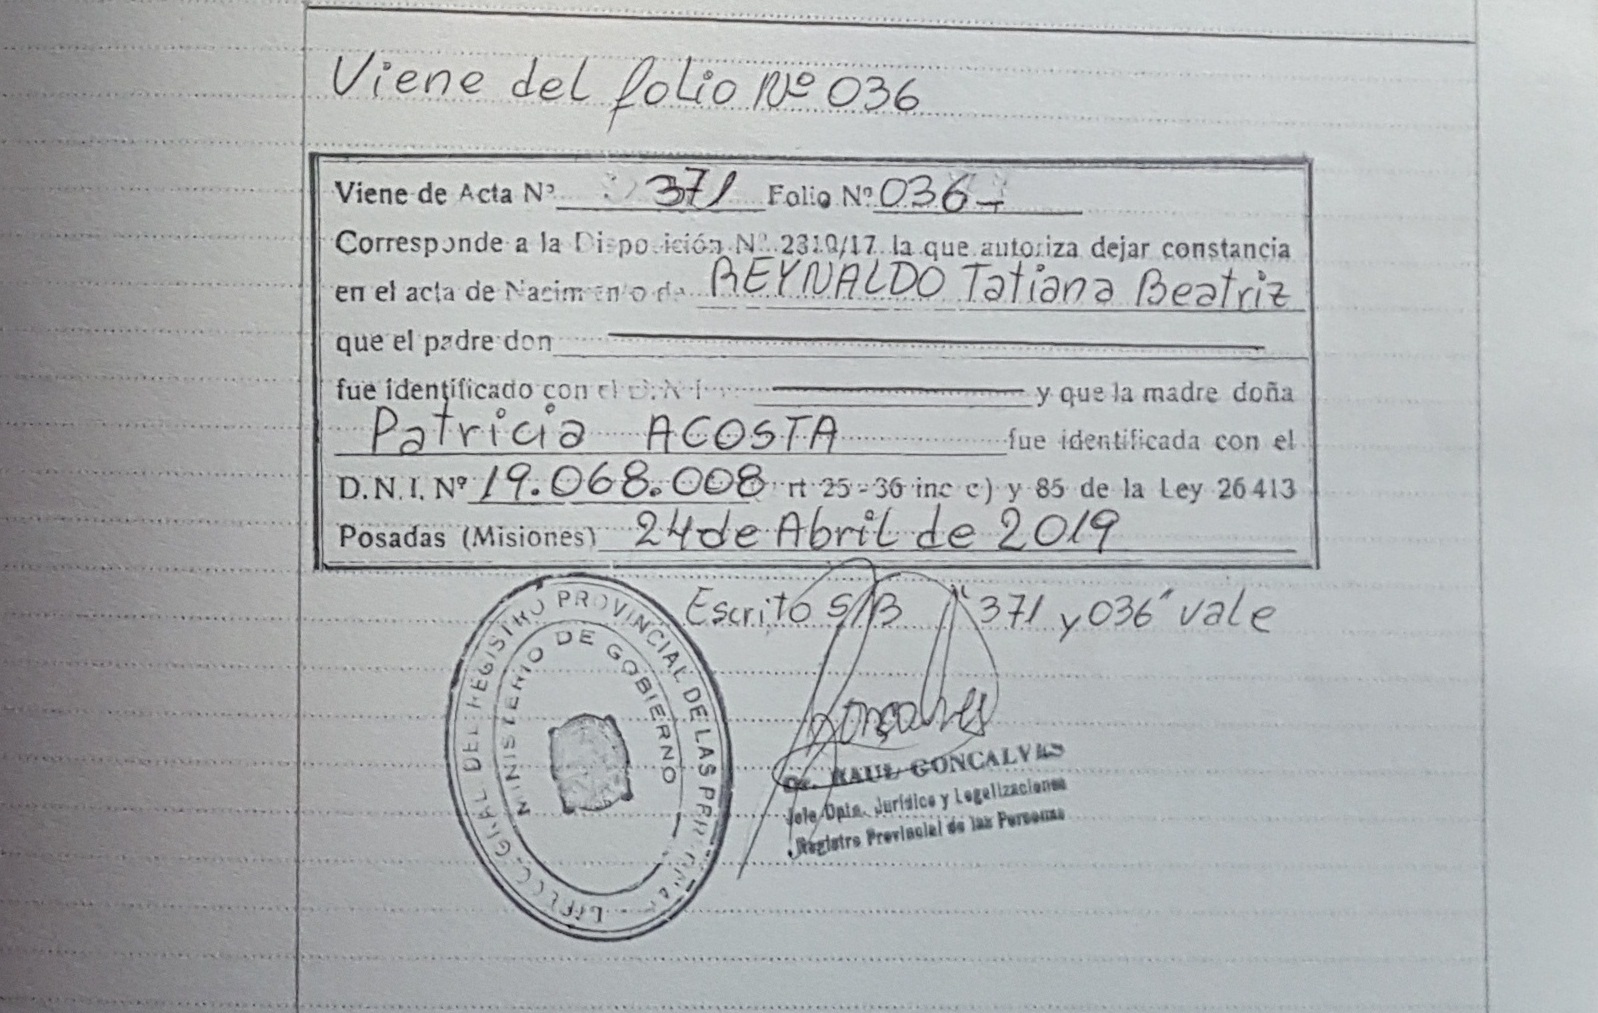 Viene del folio Nº 036
Viene de Acta Nº 371 Folio Nº 036
Corresponde a la Disposición Nº 2310/17 la que autoriza dejar constancia
en el acta de Nacimiento de REYNALDO Tatiana Beatriz
que el padre don
fue identificado con el D.N.I. y que la madre doña
Patricia ACOSTA fue identificada con el
D.N.I. Nº 19.068.008 rt 25-36 inc c) y 85 de la Ley 26413
Posadas (Misiones) 24 de Abril de 2019
Escrito S/B "371 y 036" vale
GRAL DEL REGISTRO PROVINCIAL DE LAS
MINISTERIO DE GOBIERNO
Goncalves
Dr. RAUL GONCALVES
Jefe Dpto. Jurídico y Legalizaciones
Registro Provincial de las Personas